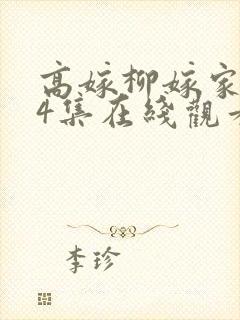 高嫁柳嫁家
4集在綫觀
李珍